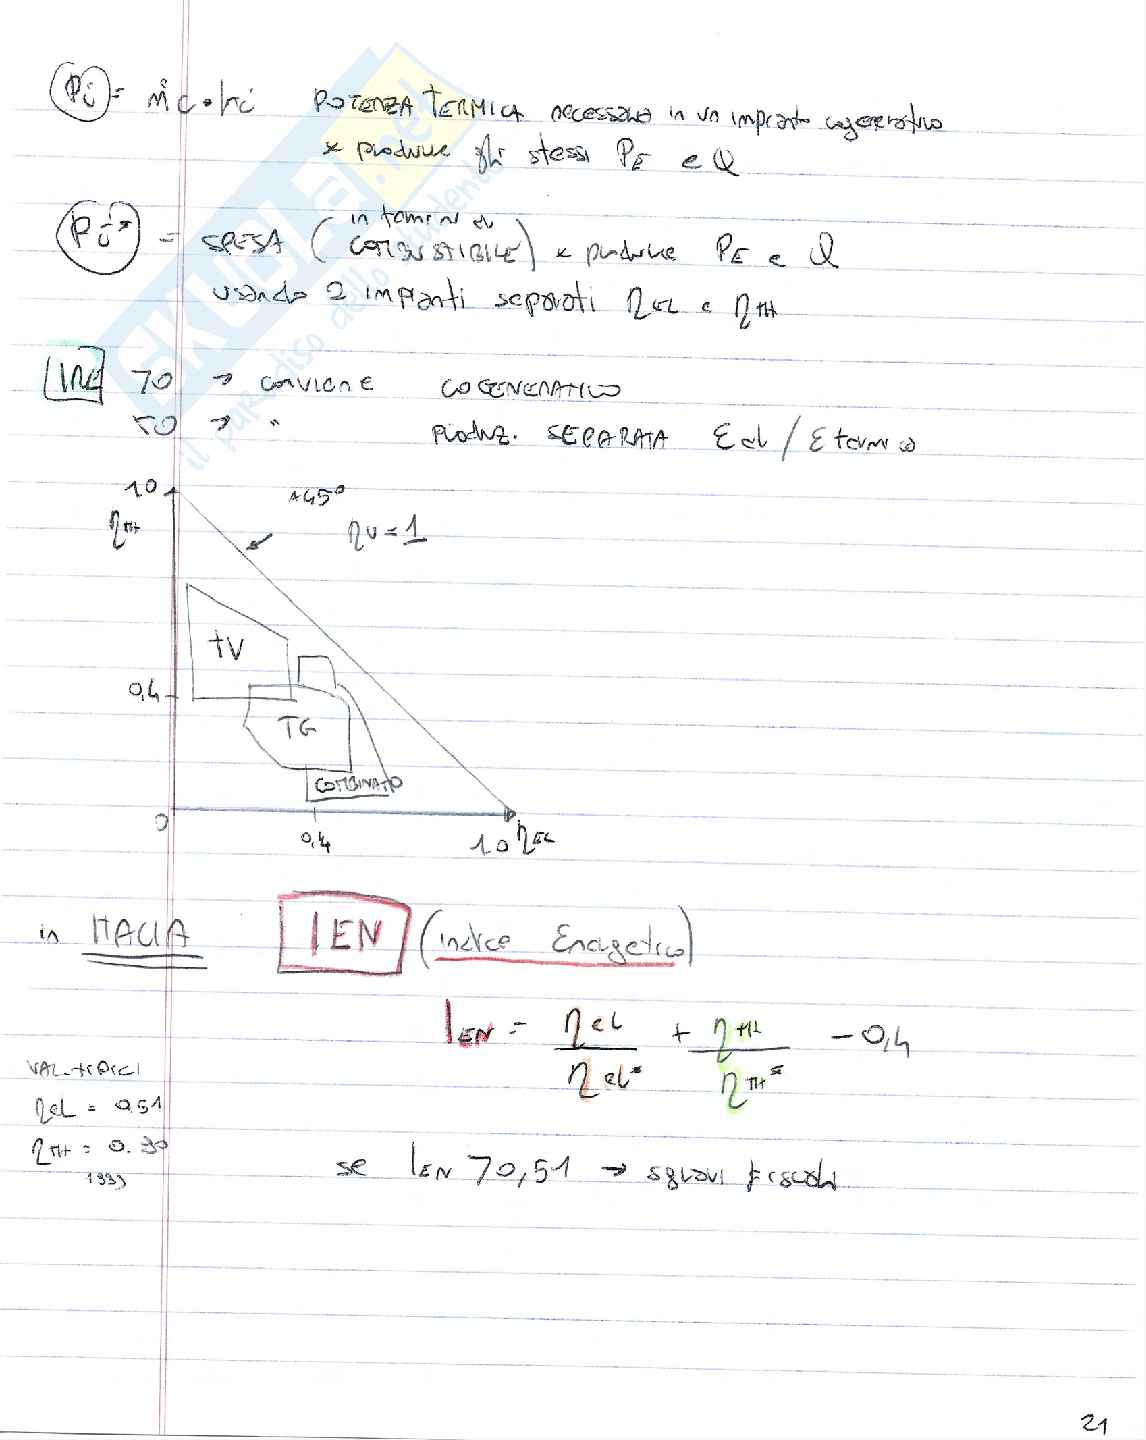 Pi = ṁc · hi POTENZA TERMICA necessaria in un impianto cogenerativo
x produrre gli stessi PE e Q
Pi* = SPESA (in termini di COMBUSTIBILE) x produrre PE e Q
usando 2 impianti separati ηEL e ηTH
IRE >0 → conviene COGENERATIVO
<0 → " PRODUZ. SEPARATA Eel / Etermico
1.0
ηTH
45°
ηv = 1
TV
0,4
TG
COMBINATO
0
0,4
1.0 ηEL
in ITALIA IEN (indice Energetico)
IEN = ηel / ηel* + ηTH / ηTH* - 0,4
VAL. TIPICI
ηel = 0.51
ηTH = 0.90
1999
se IEN >0,51 → sgravi fiscali
21
SKUOLA.net
il paradiso dello studente